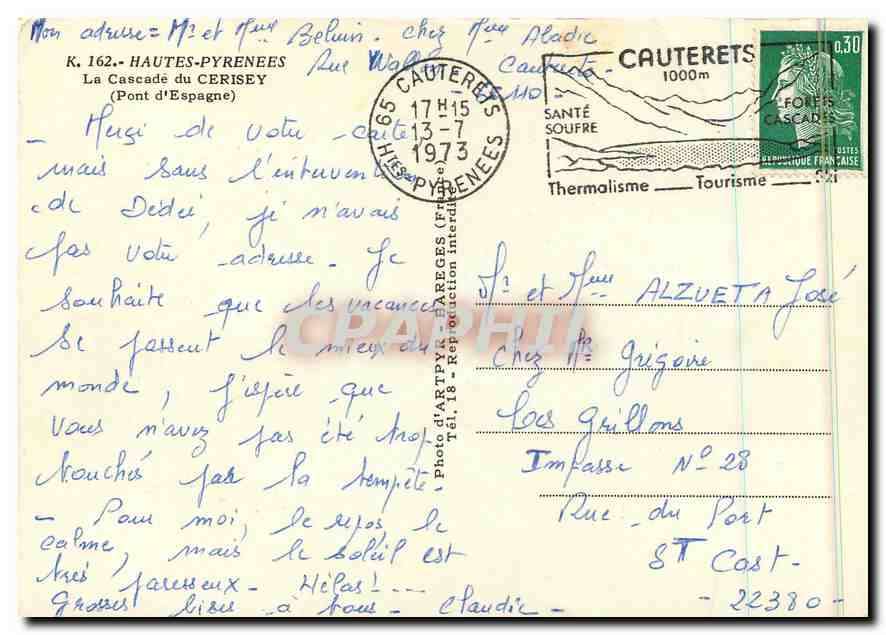 Mon adresse = Mr et Mme chez Mme
Rue Cauterets
K. 162.- HAUTES-PYRENEES
La Cascade du CERISEY
(Pont d'Espagne)
- Merci de votre carte,
mais sans l'intervent
de Dédée, je n'avais
pas votre adresse. Je
souhaite que les vacances
se passent le mieux du
monde, j'espère que
vous n'avez pas été trop
touchés par la tempête.
- Pour moi, le repos, le
calme, mais le soleil est
très paresseux - Hélas! ...
Grosses bises à tous - Claudie -
65 CAUTERETS
17H15
13-7
1973
HTES-PYRENEES
CAUTERETS
1000m
SANTÉ
SOUFRE
FORETS
CASCADES
Thermalisme __ Tourisme __ Ski
0,30
POSTES
REPUBLIQUE FRANÇAISE
Photo d'ARTPYR - BAREGES (France)
Tél. 18 - Reproduction interdite
CPAPHIL
Mr et Mme ALZUETA José
Chez Mr Grégoire
Les Grillons
Impasse No 28
Rue du Port
ST Cast -
- 22380 -